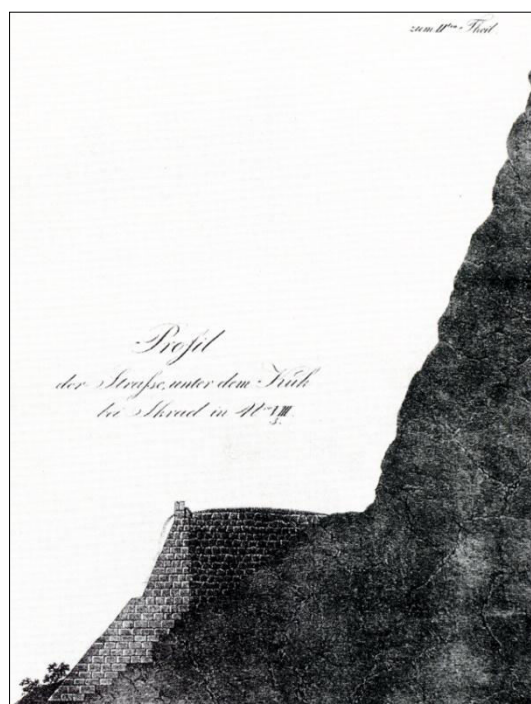 zum IIten Theil.
Profil
der Straße, unter dem Kuk
bei Skrad in No VIII